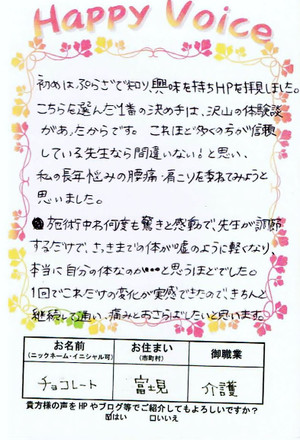 Happy Voice
初めは、ぷらざで知り、興味を持ちHPを拝見しました。
こちらを選んだ1番の決めてきは、沢山の体験談
があったからです。これほど多くの方が信頼
している先生なら間違いない！と思い、
私の長年悩みの腰痛・肩こりを委ねてみようと
思いました。
施術中も何度も驚きと感動で、先生が調節
するだけで、さっきまでの体が嘘のように軽くなり、
本当に自分の体なのか…と思うほどでした。
1回でこれだけの変化が実感できたので、きちんと
継続して通い、痛みとおさらばしたいと思います。
お名前 お住まい 御職業
(ニックネーム・イニシャル可) (市町村)
チョコレート 富士見 介護
貴方様の声をHPやブログ等でご紹介してもよろしいですか？
☑はい □いいえ